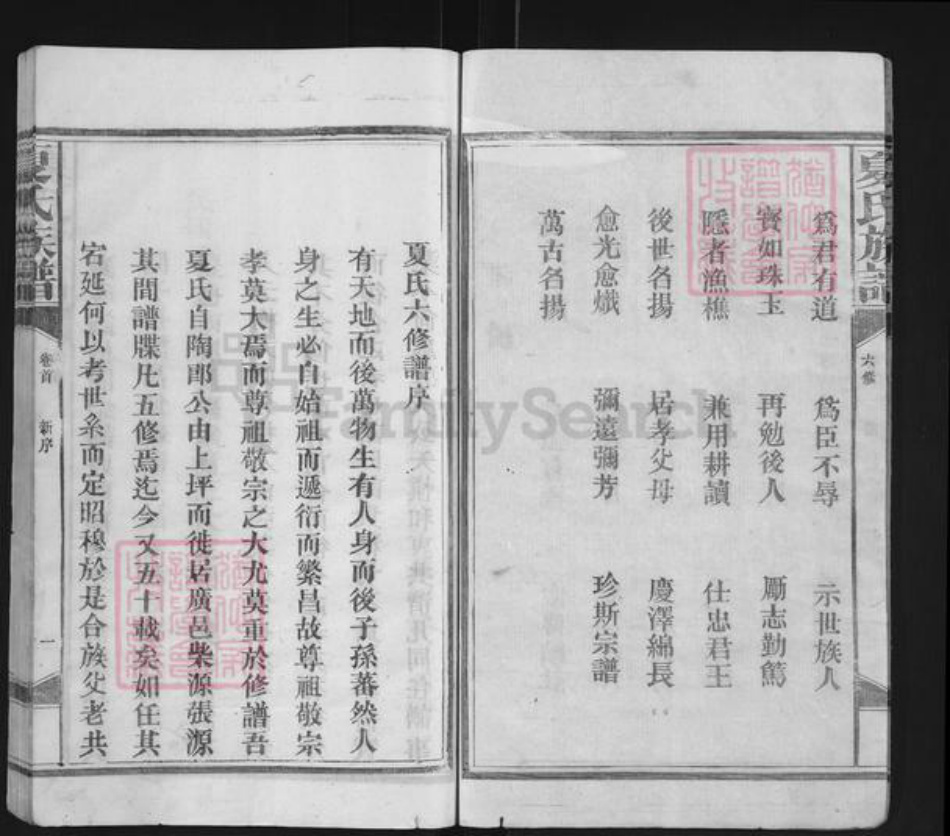 夏氏族譜
六修
爲君有道 爲臣不辱 示世族人
寶如珠玉 再勉後人 勵志勤篤
隱者漁樵 兼用耕讀 仕忠君王
後世名揚 居孝父母 慶澤綿長
愈光愈熾 彌遠彌芳 珍斯宗譜
萬古名揚
夏氏六修譜序
有天地而後萬物生有人身而後子孫蕃然人
身之生必自始祖而遞衍而繁昌故尊祖敬宗
孝莫大焉而尊祖敬宗之大尤莫重於修譜吾
夏氏自陶郎公由上坪而徙居廣邑柴源張源
其間譜牒凡五修焉迄今又五十載矣如任其
宕延何以考世系而定昭穆於是合族父老共
夏氏族譜
卷首 新序
一
FamilySearch